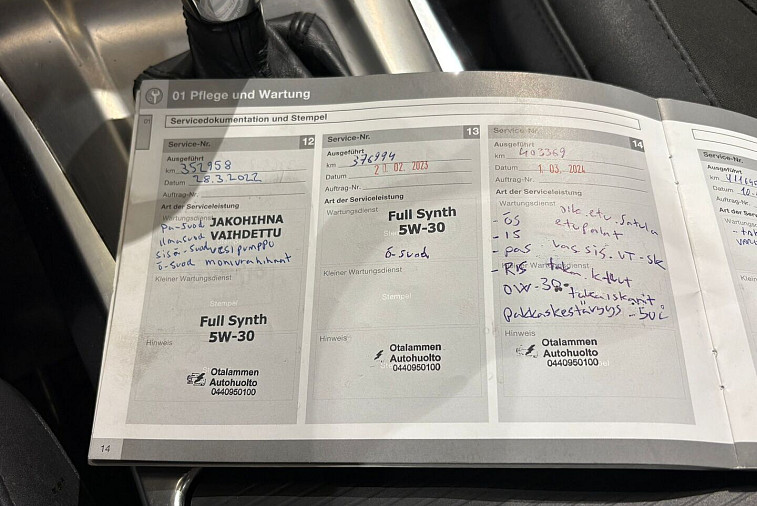 01 Pflege und Wartung
01
Servicedokumentation und Stempel
Service-Nr. 12
Ausgeführt
km 352958
Datum 28.3.2022
Auftrag-Nr.
Art der Serviceleistung
Wartungsdienst
pa-suod JAKOHIHNA
ilmasuod VAIHDETTU
sisä-suod vesipumppu
ö-suod moniurahihnat
Kleiner Wartungsdienst
Stempel
Full Synth
5W-30
Hinweis
Otalammen
Autohuolto
0440950100
Service-Nr. 13
Ausgeführt
km 376994
Datum 21 02. 2023
Auftrag-Nr.
Art der Serviceleistung
Wartungsdienst
Full Synth
5W-30
ö-suod
Kleiner Wartungsdienst
Stempel
Hinweis
Otalammen
Autohuolto
0440950100
Service-Nr. 14
Ausgeführt
km 403369
Datum 1 03. 2024
Auftrag-Nr.
Art der Serviceleistung
Wartungsdienst
- ös
etu
- is
- pas vas sis. VT-
- RS
0W-30
pakkaskestävyys -50c
Hinweis
Otalammen
Autohuolto
0440950100
Service-Nr.
Ausgeführt
km
Datum
Auftrag-Nr.
14